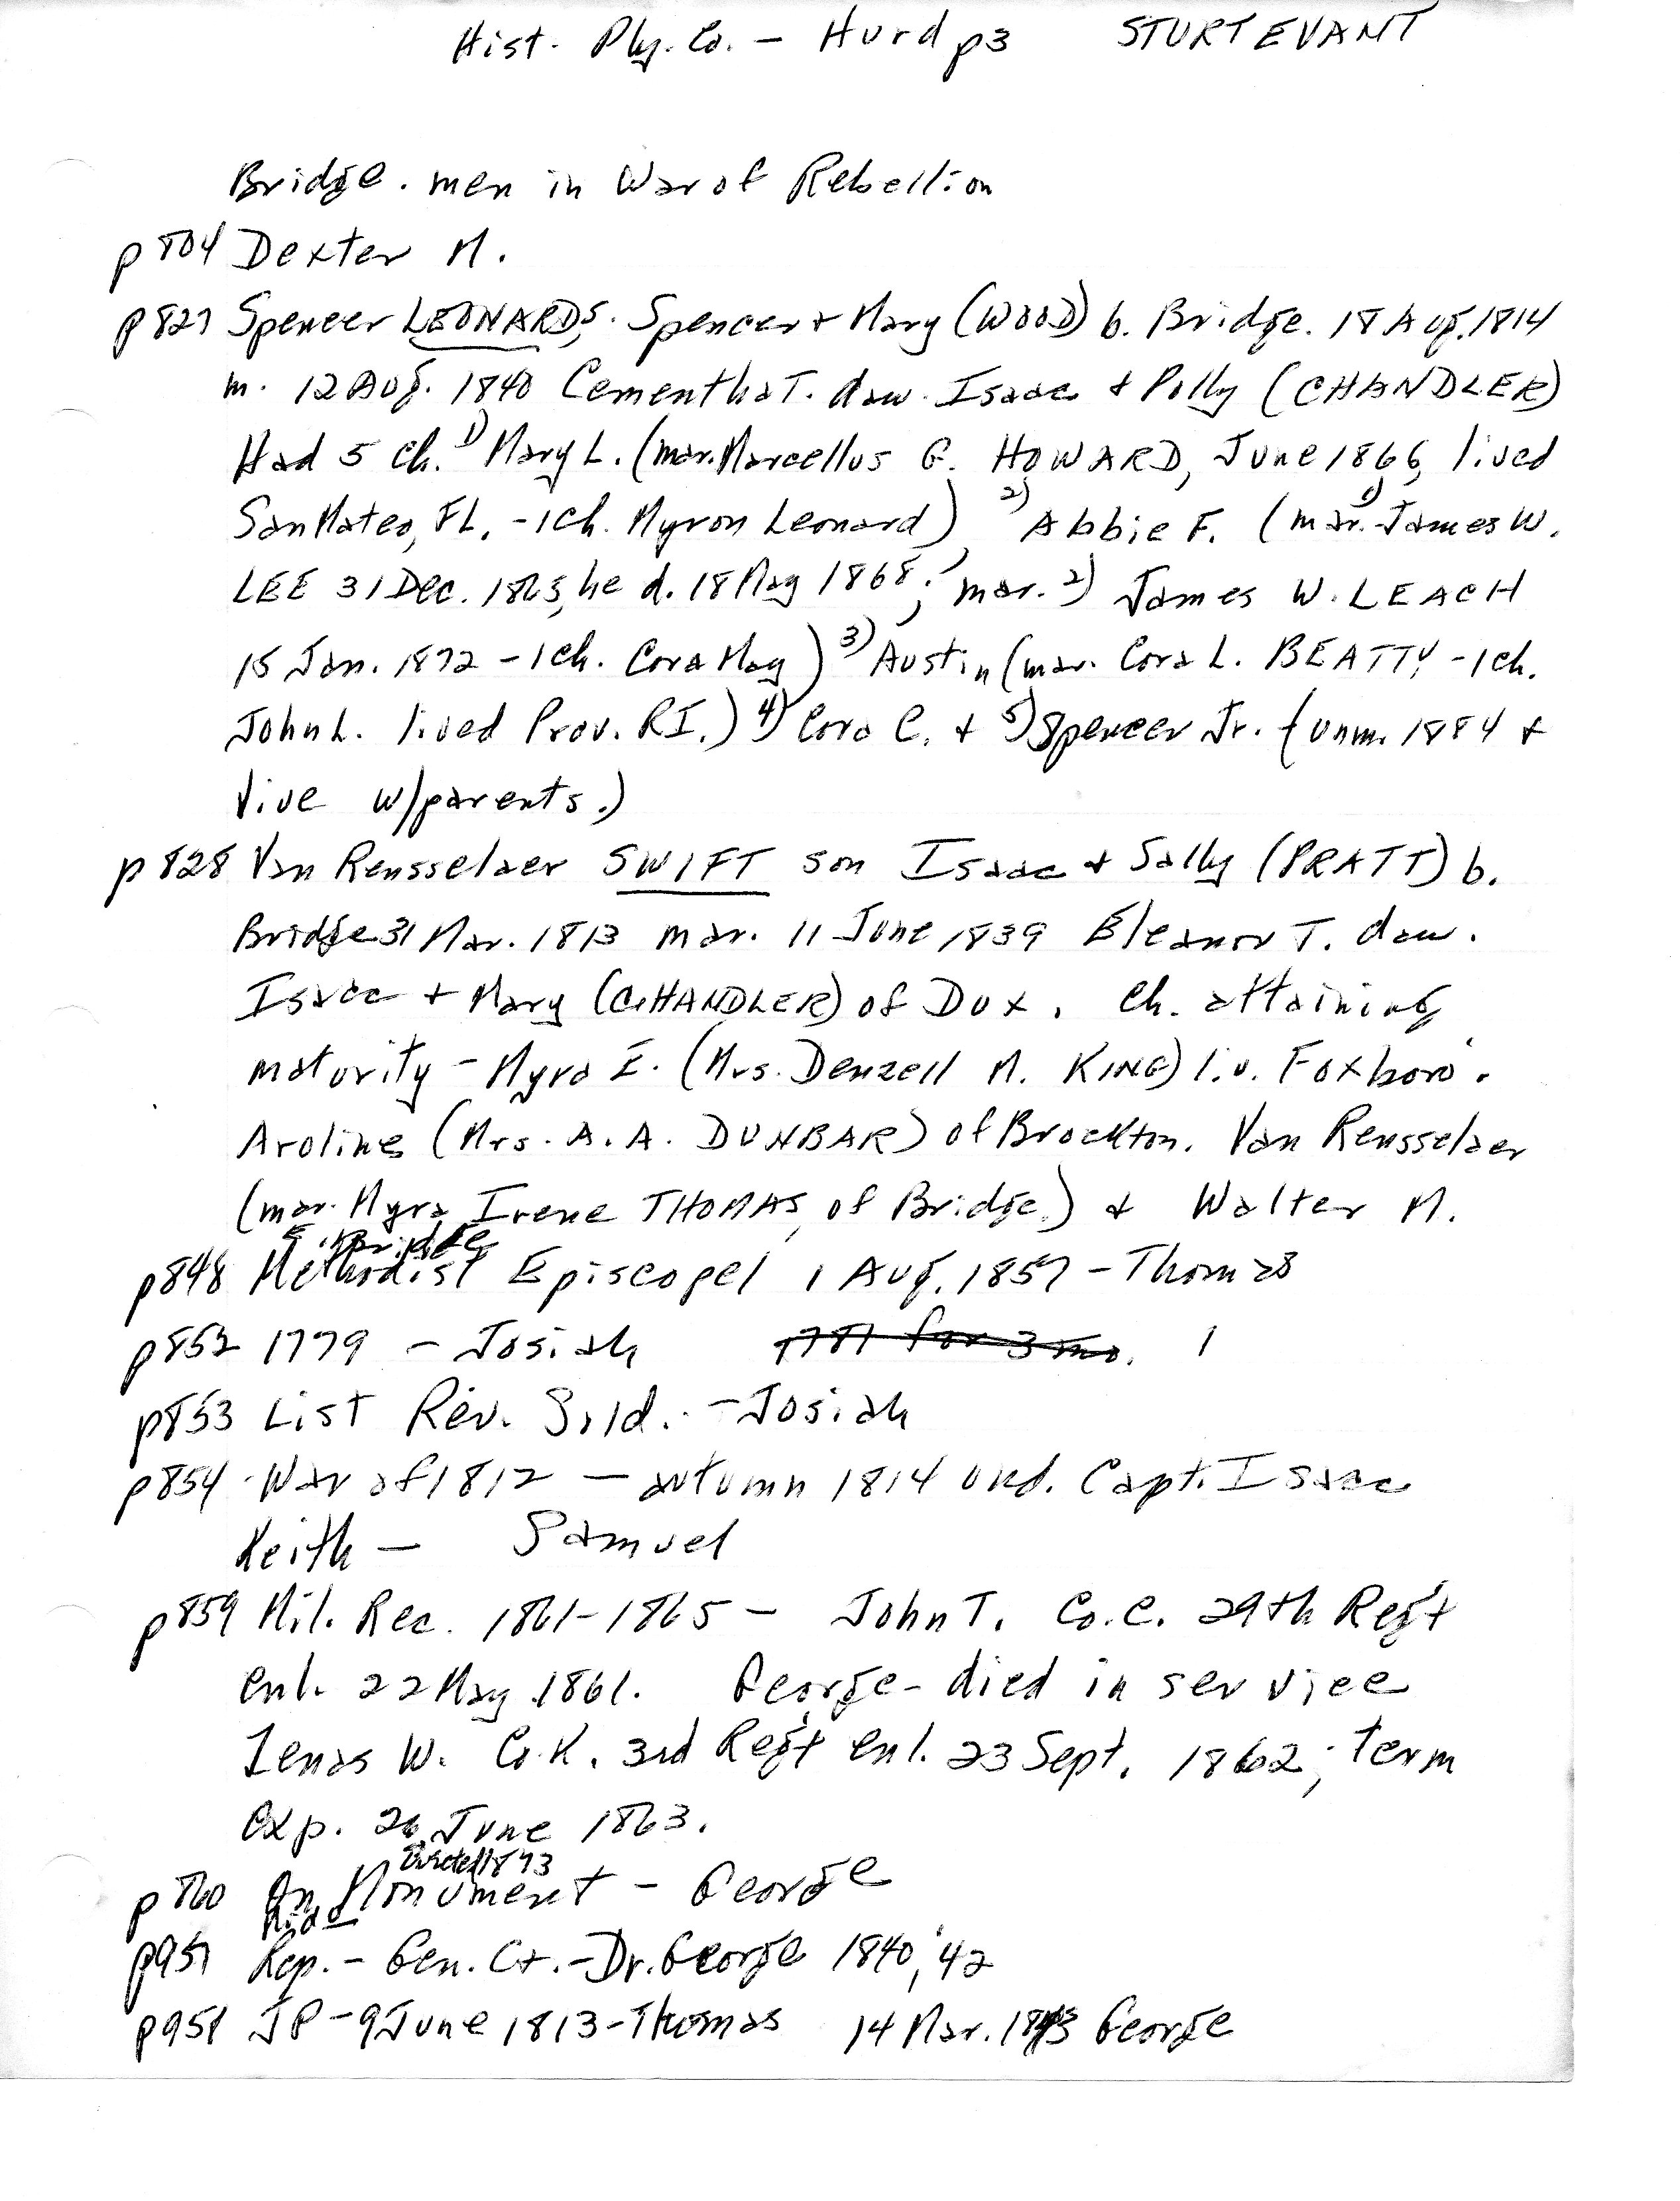 Hist. Ply. Co. - Hurd p3 STURTEVANT
Bridge. men in War of Rebellion
p804 Dexter M.
p827 Spencer LEONARD, s. Spencer + Mary (WOOD) b. Bridge. 18 Aug. 1814
m. 12 Aug. 1840 Cementha T. daw. Isaac + Polly (CHANDLER)
Had 5 ch. 1) Mary L. (mar. Marcellus G. HOWARD, June 1866, lived
San Mateo, FL. - 1 ch. Myron Leonard) 2) Abbie F. (mar. 1) James W.
LEE 31 Dec. 1863, he d. 18 May 1868; mar. 2) James W. LEACH
15 Jan. 1872 - 1 ch. Cora May) 3) Austin (mar. Cora L. BEATTY - 1 ch.
John L. lived Prov. RI.) 4) Cora C. + 5) Spencer Jr. (unm. 1884 +
live w/parents.)
p828 Van Rensselaer SWIFT son Isaac + Sally (PRATT) b.
Bridge 31 Mar. 1813 mar. 11 June 1839 Eleanor T. daw.
Isaac + Mary (CHANDLER) of Dux. Ch. attaining
maturity - Myra E. (Mrs. Denzell M. KING) liv. Foxboro'.
Aroline (Mrs. A. A. DUNBAR) of Brockton. Van Rensselaer
(mar. Myra Irene THOMAS, of Bridge.) + Walter M.
E. Bridge
p848 Methodist Episcopel 1 Aug. 1857 - Thomas
p852 1779 - Josiah 1781 for 3 mo. 1
p853 List Rev. Sold. - Josiah
p854 War of 1812 - autumn 1814 und. Capt. Isaac
Keith - Samuel
p859 Mil. Rec. 1861-1865 - John T. Co. C. 29th Reg't
enl. 22 May 1861. George - died in service
Zenas W. Co. K. 3rd Reg't enl. 23 Sept. 1862; term
exp. 26 June 1863.
Erected 1873
p860 On Monument - George
Midd
p957 Rep. - Gen. Ct. - Dr. George 1840, '42
p958 JP - 9 June 1813 - Thomas 14 Mar. 1843 George